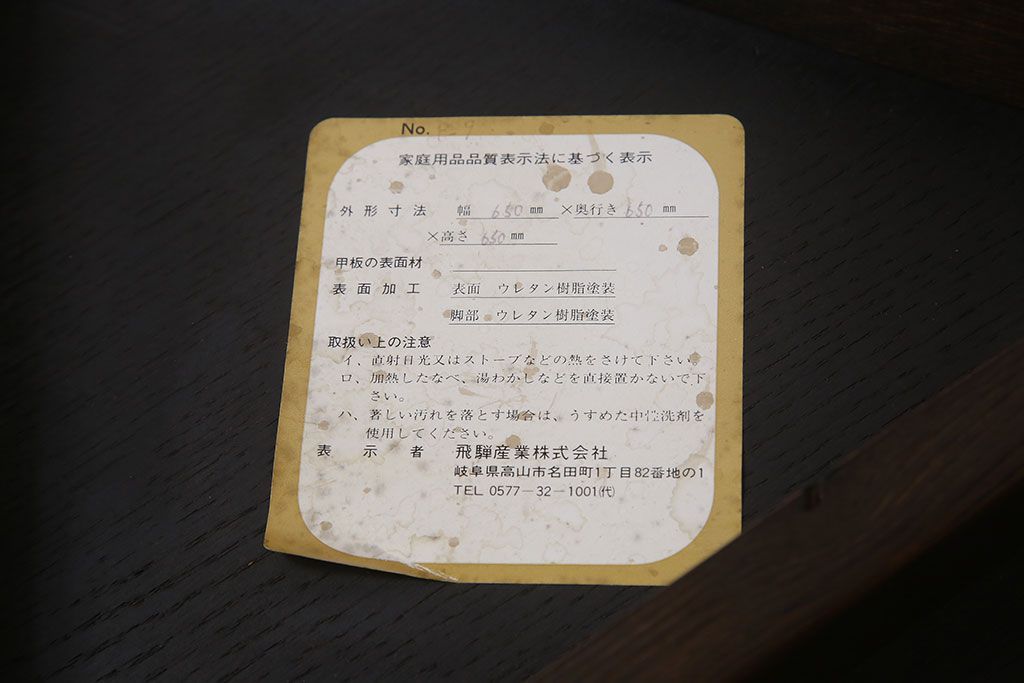 No.
家庭用品品質表示法に基づく表示
外形寸法 幅 650 mm ×奥行き 650 mm
×高さ 650 mm
甲板の表面材
表面加工 表面 ウレタン樹脂塗装
脚部 ウレタン樹脂塗装
取扱い上の注意
イ、直射日光又はストーブなどの熱をさけて下さい。
ロ、加熱したなべ、湯わかしなどを直接置かないで下
さい。
ハ、著しい汚れを落とす場合は、うすめた中性洗剤を
使用してください。
表示者 飛騨産業株式会社
岐阜県高山市名田町1丁目82番地の1
TEL 0577-32-1001㈹